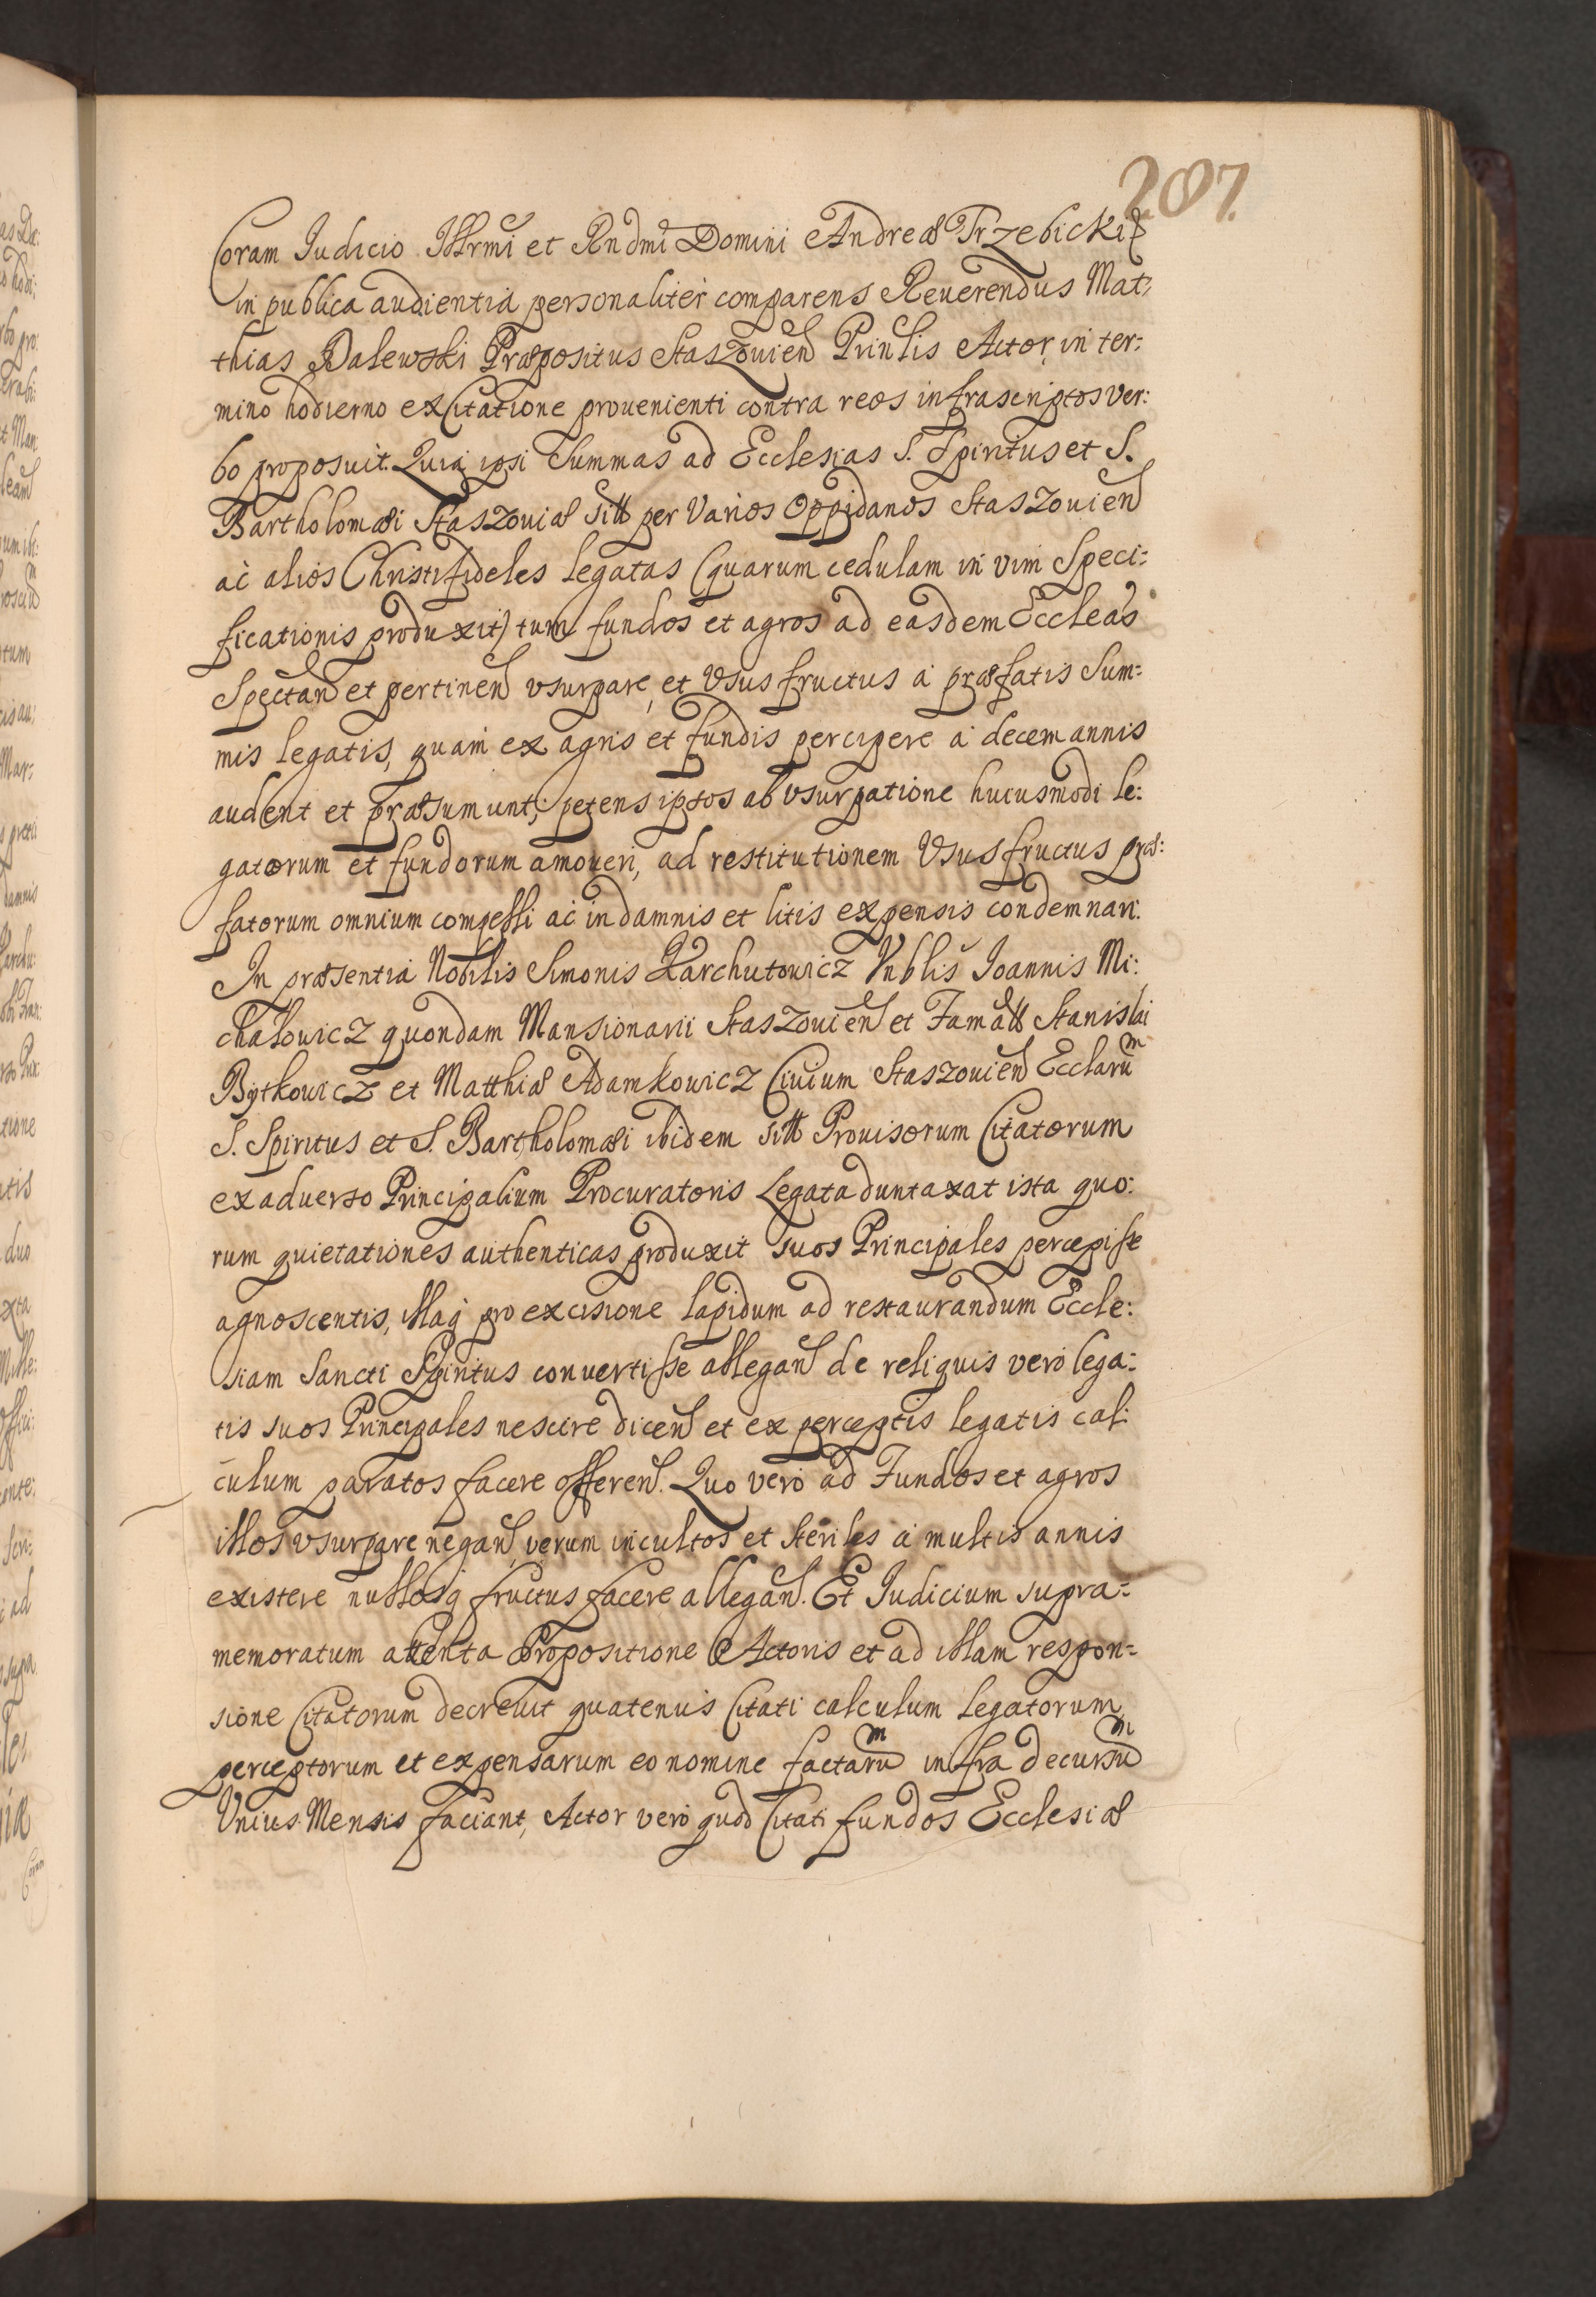 207.
Coram Iudicio Illrmi et Rndmi Domini Andreæ Trzebicki etc
in publica audientia personaliter comparens Reuerendus Mat:
thias Dalewski Præpositus Staszouien Prinlis Actor in ter:
mino hodierno ex Citatione prouenienti contra reos infrascriptos ver:
bo proposuit. Quia ipsi Summas ad Ecclesias S. Spiritus et S.
Bartholomæi Staszouiæ sitt per Varios Oppidanos Staszouien
ac alios Christifideles legatas (quarum cedulam in vim Speci:
ficationis produxit) tum fundos et agros ad easdem Eccleas
Spectan et pertinen vsurpare, et Vsus fructus a præfatis Sum:
mis legatis, quam ex agris et fundis percipere a decem annis
audent et præsumunt; petens ipsos ab vsurpatione huiusmodi le:
gatorum et fundorum amoueri, ad restitutionem Vsus fructus præ:
fatorum omnium compelli ac in damnis et litis expensis condemnari.
In præsentia Nobilis Simonis Karchutowicz Vnblis Ioannis Mi:
chalowicz quondam Mansionarii Staszouien et Famatt Stanislai
Bytkowicz et Matthiæ Adamkowicz Ciuium Staszouien Ecclarum
S. Spiritus et S. Bartholomæi ibidem sitt Prouisorum Citatorum
ex aduerso Principalium Procuratoris Legata duntaxat ista quo:
rum quietationes authenticas produxit suos Principales percepisse
agnoscentis, illaq pro excisione lapidum ad restaurandum Eccle:
siam Sancti Spiritus convertisse allegan de reliquis vero lega:
tis suos Principales nescire dicen et ex perceptis legatis cal:
culum paratos facere offeren. Quo vero ad Fundos et agros
illos vsurpare negan, verum incultos et steriles a multis annis
existere nullosq fructus facere allegan. Et Iudicium supra:
memoratum attenta Propositione Actoris et ad illam respon:
sione Citatorum decreuit quatenus Citati calculum legatorum
perceptorum et expensarum eo nomine factarum infra decursum
Vnius Mensis faciant, Actor vero quod Citati fundos Ecclesiæ